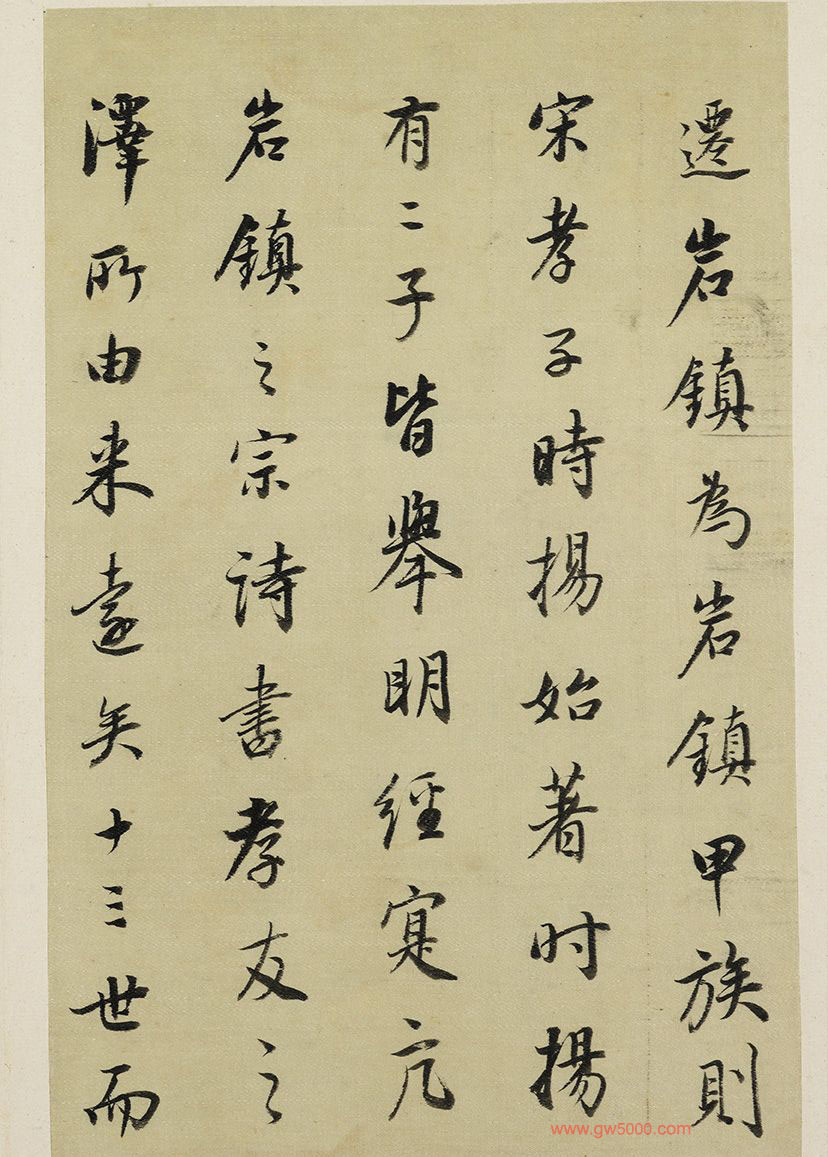 遷岩鎮為岩鎮甲族則
宋孝子時揚始著时揚
有二子皆舉明經寔亢
岩鎮之宗诗書孝友之
澤所由来遠矣十三世而
www.gw5000.com